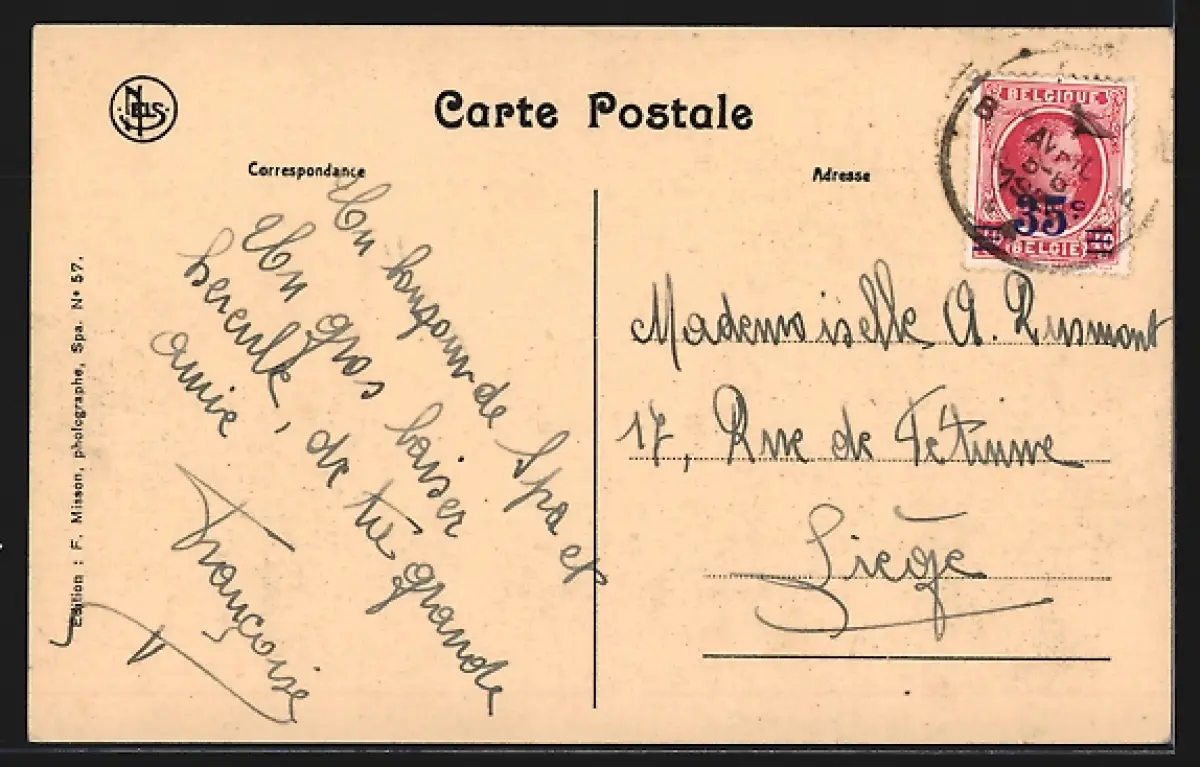 NELS
Carte Postale
Correspondance
Adresse
Un bonjour de Spa et
Un gros baiser
de ta grande
amie
Françoise
Mademoiselle A. Rusmont
17, Rue de Fétinne
Liège
BELGIQUE
AVRIL
35
BELGIE
Edition : F. Misson, photographe, Spa. N° 57.